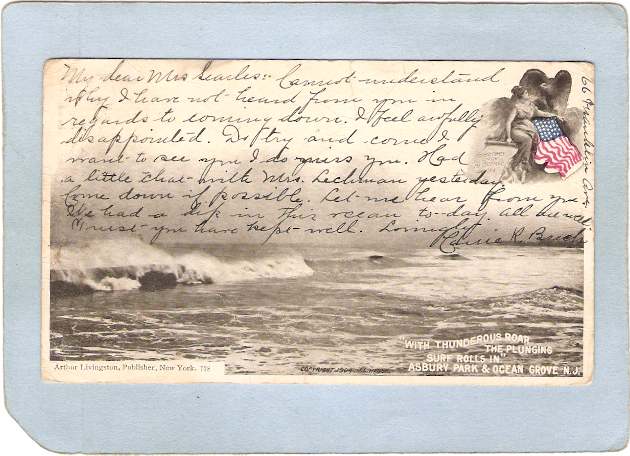 My dear Mrs Searles:- Cannot understand
why I have not heard from you in
regards to coming down. I feel awfully
disappointed. Do try and come I
want to see you I do miss you. Had
a little chat with Mrs. Lechman yesterday
Come down if possible. Let me hear from you
We had a dip in this ocean to-day. All are well
Trust you have kept well.
Carrie R. Buch
66 Ave
"WITH THUNDEROUS ROAR
THE PLUNGING
SURF ROLLS IN."
ASBURY PARK & OCEAN GROVE N.J.
Arthur Livingston, Publisher, New York. 718
COPYRIGHT 1904